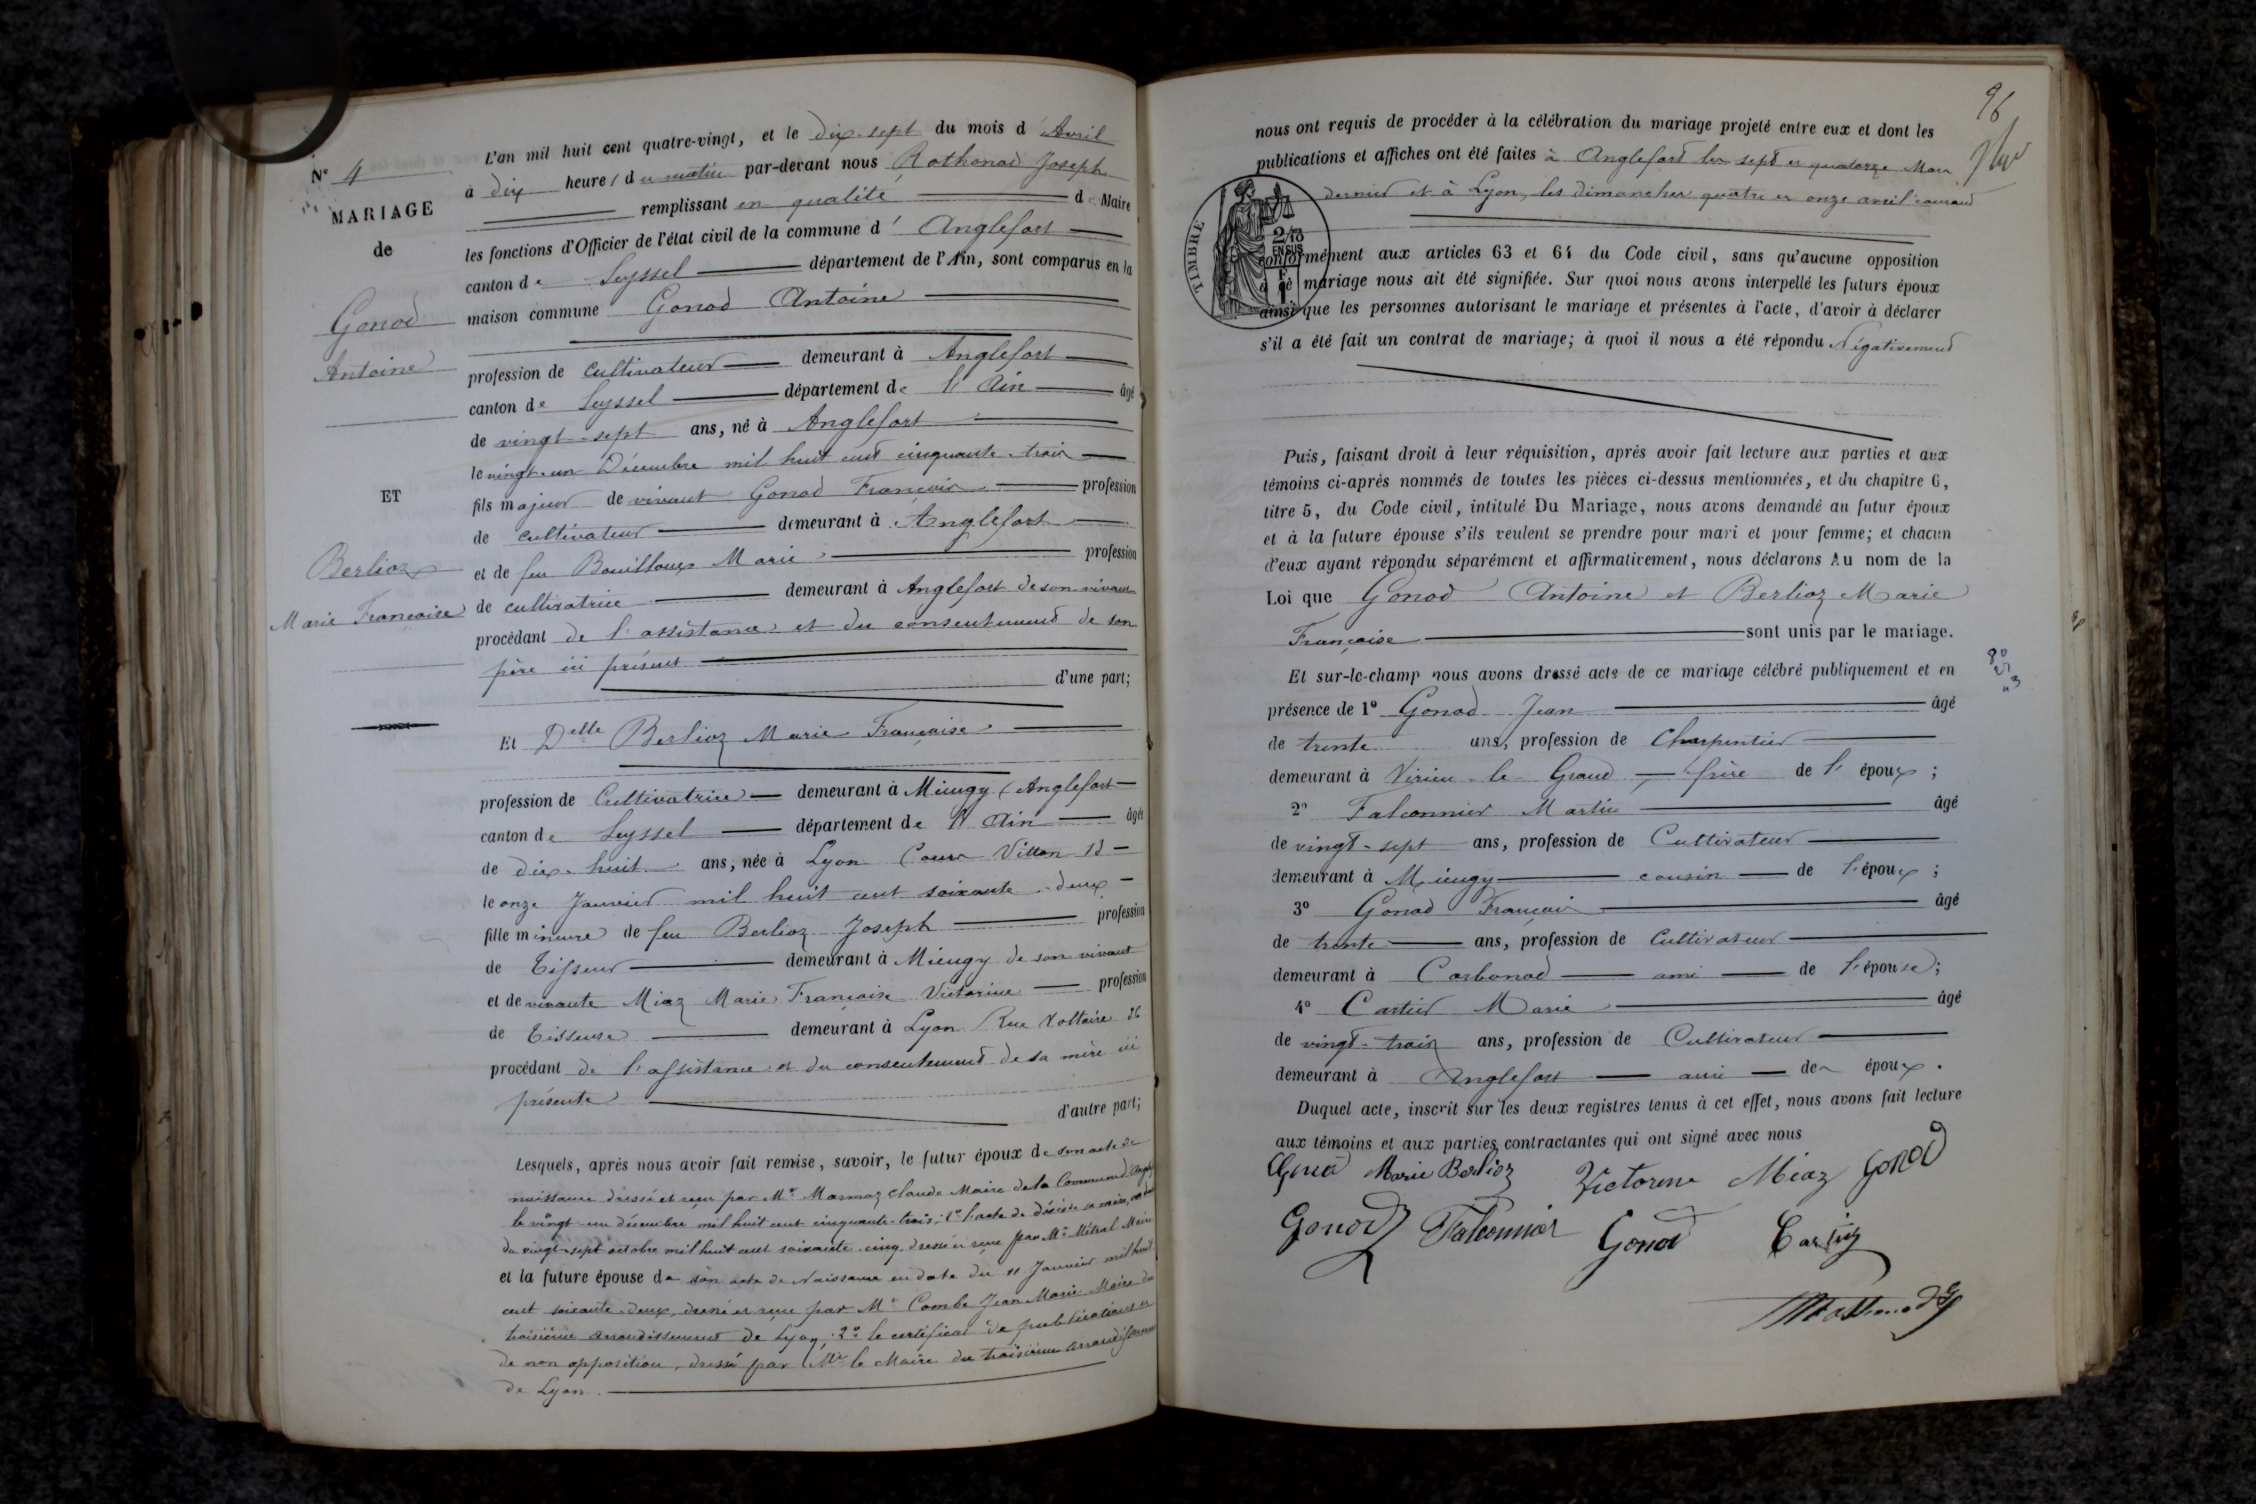 N° 4
MARIAGE
de
Gonod
Antoine
ET
Berlioz
Marie Françoise
L'an mil huit cent quatre-vingt, et le dix-sept du mois d'Avril
à dix heures du matin par-devant nous Rothonod Joseph
remplissant en qualité de Maire
les fonctions d'Officier de l'état civil de la commune d'Anglefort
canton de Seyssel département de l'Ain, sont comparus en la
maison commune Gonod Antoine
profession de cultivateur demeurant à Anglefort
canton de Seyssel département de l'Ain âgé
de vingt-sept ans, né à Anglefort
le vingt-un Décembre mil huit cent cinquante-trois
fils majeur de vivant Gonod François profession
de cultivateur demeurant à Anglefort
et de feu Bouilloux Marie profession
de cultivatrice demeurant à Anglefort de son vivant
procédant de l'assistance et du consentement de son
père ici présent
d'une part;
Et Delle Berlioz Marie Françoise
profession de Cultivatrice demeurant à Mieugy (Anglefort
canton de Seyssel département de l'Ain âgée
de dix-huit ans, née à Lyon Cours Vitton 13
le onze Janvier mil huit cent soixante-deux
fille mineure de feu Berlioz Joseph profession
de Tisseur demeurant à Mieugy de son vivant
et de vivante Miaz Marie Françoise Victorine profession
de Tisseuse demeurant à Lyon Rue Voltaire 26
procédant de l'assistance et du consentement de sa mère ici
présente
d'autre part;
Lesquels, après nous avoir fait remise, savoir, le futur époux de son acte de
naissance dressé et reçu par Mr Marmaz Claude Maire de la Commune d'
le vingt-un décembre mil huit cent cinquante-trois; l'acte de décès de sa mère,
du vingt-sept octobre mil huit cent soixante-cinq dressé et reçu par Mr Métral Maire
et la future épouse de son acte de Naissance en date du 11 Janvier mil huit
cent soixante-deux, dressé et reçu par Mr Combe Jean Marie Maire du
troisième arrondissement de Lyon 2° le certificat de publications et
de non opposition, dressé par Mr le Maire du troisième arrondissement
de Lyon.
96
nous ont requis de procéder à la célébration du mariage projeté entre eux et dont les
publications et affiches ont été faites à Anglefort les sept et quatorze Mars
dernier et à Lyon, les dimanches quatre et onze avril courant
TIMBRE
EN SUS
conformément aux articles 63 et 64 du Code civil, sans qu'aucune opposition
à ce mariage nous ait été signifiée. Sur quoi nous avons interpellé les futurs époux
ainsi que les personnes autorisant le mariage et présentes à l'acte, d'avoir à déclarer
s'il a été fait un contrat de mariage; à quoi il nous a été répondu Négativement
Puis, faisant droit à leur réquisition, après avoir fait lecture aux parties et aux
témoins ci-après nommés de toutes les pièces ci-dessus mentionnées, et du chapitre 6,
titre 5, du Code civil, intitulé Du Mariage, nous avons demandé au futur époux
et à la future épouse s'ils veulent se prendre pour mari et pour femme; et chacun
d'eux ayant répondu séparément et affirmativement, nous déclarons Au nom de la
Loi que Gonod Antoine et Berlioz Marie
Françoise sont unis par le mariage.
Et sur-le-champ nous avons dressé acte de ce mariage célébré publiquement et en
présence de 1° Gonod Jean âgé
de trente ans, profession de Charpentier
demeurant à Virieu-le-Grand frère de l'époux;
2° Falconnier Martin âgé
de vingt-sept ans, profession de Cultivateur
demeurant à Mieugy cousin de l'époux;
3° Gonod François âgé
de trente ans, profession de Cultivateur
demeurant à Corbonod ami de l'épouse;
4° Cartier Marie âgé
de vingt-trois ans, profession de Cultivateur
demeurant à Anglefort ami des époux.
Duquel acte, inscrit sur les deux registres tenus à cet effet, nous avons fait lecture
aux témoins et aux parties contractantes qui ont signé avec nous
Gonod Marie Berlioz Victorine Miaz Gonod
Gonod Falconnier Gonod Cartier
Rothonod